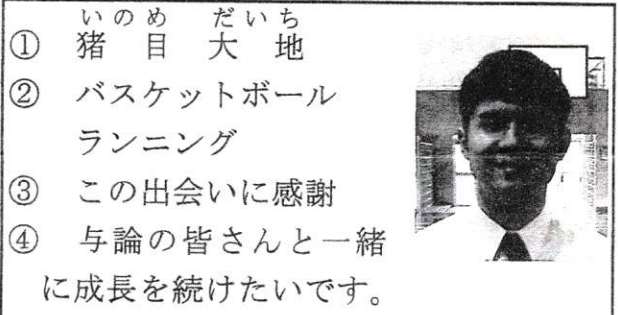 いのめ だいち
① 猪目大地
② バスケットボール
ランニング
③ この出会いに感謝
④ 与論の皆さんと一緒
に成長を続けたいです。